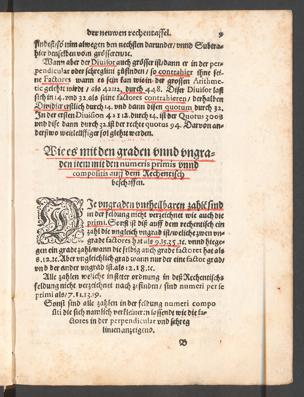 der neuwen rechentaffel. 9
findest/so nim alwegen den nechsten darunder/ vnnd Subtra-
hier denselben von
Wann aber der Diuisor auch grösser ist dann er in der per-
pendicular oder schreglini zůfinden/ so contrahier ihne seine
Factores wann es sein kan wie in der grossen Arithme-
tic gelehrt wirdt / als 42112, durch 448. Diser Diuisor last
sich in 14. vnd 32. als seine factores contrahieren / derhalben
Dividir erstlich durch 14. vnd dann disen quotum durch 32.
In der ersten Diuision 42112. durch 14. ist der Quotus 3008
vnd dise dann durch 32. ist der recht quotus 94. Daruon an-
derswo weitleüffiger sol gehet werden.
Wie es mit den graden vnnd vngra-
den item mit den numeris primis vnnd
compositis auff dem Rechentisch
beschaffen.
Die vngraden vntheilbaren zahlē sind
in der feldung nicht verzeichnet wie auch die
primi. Sonst ist diß auff dem rechentisch ein
grade factores hat als 9.15.25. vnnd hiege-
gen ein grade zahl wann die selbig auch grade factores hat als
8.12. Aber vngleichlich grad wann nur der eine factor grad/
vnd der ander vngrad ist. als 12.18.
Alle zahlen welche in steter ordnung in deß Rechentischs
feldung nicht verzeichnet nach zůfinden / sind numeri per se
primi als/ 7.11.13.19.
Sonst sind alle zahlen in der feldung numeri compo
siti die sich namlich verkleinern lassende wie die fac-
tores in der perpendicular vnd schreg
linien anzeigend.
B